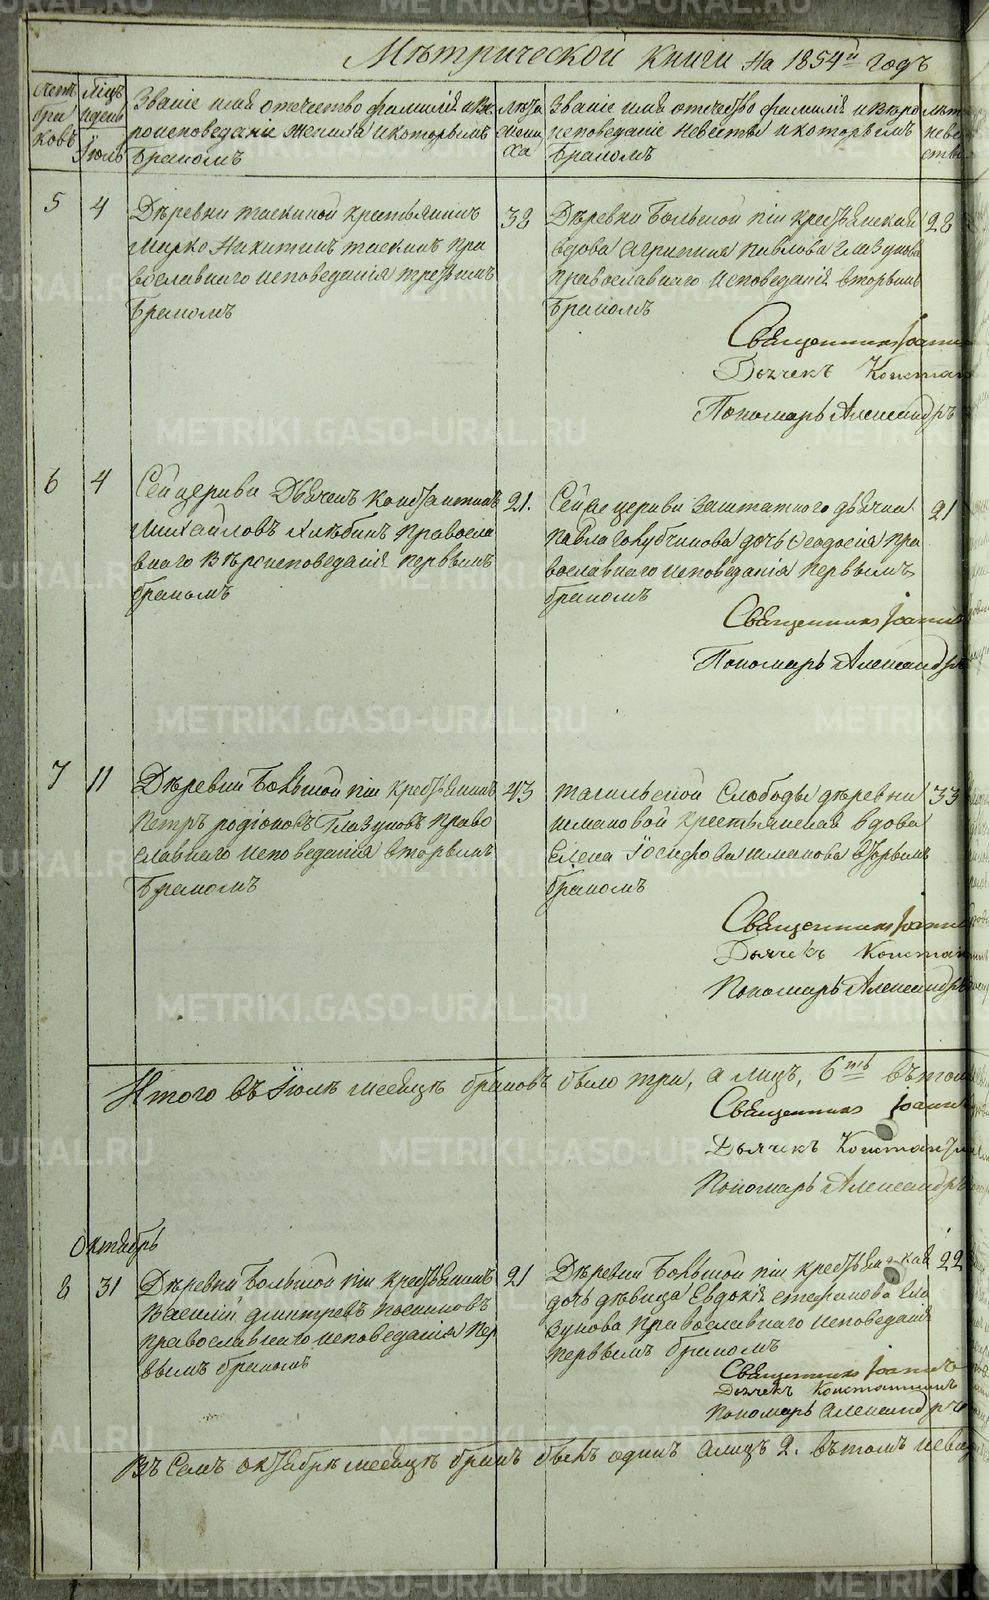 Мѣтрической книги на 1854й годъ
Счетъ браковъ
Мѣцъ и день
Іюль
Званіе имя отечество фамилія и вѣ
роисповеданіе жениха и которымъ
бракомъ
лѣта жениха
Званіе имя отечество фамилія и вѣро
исповеданіе невѣсты и которымъ
бракомъ
лѣта невѣсты
5 4
Деревни таскиной крестьянинъ
Марко Никитинъ таскинъ пра
вославнаго исповеданія третьимъ
бракомъ
38
Деревни Большой ніи крестьянская
вдова Агрипина Павлова Глазунова
православнаго исповеданія вторымъ
бракомъ
28
Священникъ Іоаннъ
Дьячекъ Констан
Пономарь Александръ
6 4
Сей церкви Дьячекъ Константинъ
Михайловъ Хлѣбинъ Правосла
внаго Вѣроисповеданія первымъ
бракомъ
21.
Сей же церкви Заштатного дьячка
Павла Голубчикова дочь Феодосія пра
вославнаго исповеданія первымъ
бракомъ
21
Священникъ Іоаннъ
Пономарь Александръ
7 11
Деревни Большой ніи крестьянинъ
Петръ родіоновъ Глазуновъ право
славнаго исповеданія вторымъ
бракомъ
43
тагильской Слободы деревни
шмаковой крестьянская вдова
Елена Іосифова шмакова вторымъ
бракомъ
33
Священникъ Іоаннъ
Дьячекъ Констан
Пономарь Александръ
Итого въ Іюлѣ месяцѣ браковъ было три, а лицъ, 6ть вътом
Священникъ Іоаннъ
Дьячекъ Константин
Пономарь Александръ
Октябрь
8 31
Деревни Большой ніи крестьянинъ
Василій дмитревъ
православнаго исповеданія пер
вымъ бракомъ
21
Деревни Большой ніи крестьянская
дочь девица Евдокія стефанова Гла
зунова православнаго исповеданія
первымъ бракомъ
22
Священникъ Іоаннъ
Дьячекъ Константинъ
Пономарь Александръ
Въ Семъ октябрѣ месяцѣ бракъ былъ одинъ а лицъ 2. вътомъ
METRIKI.GASO-URAL.RU